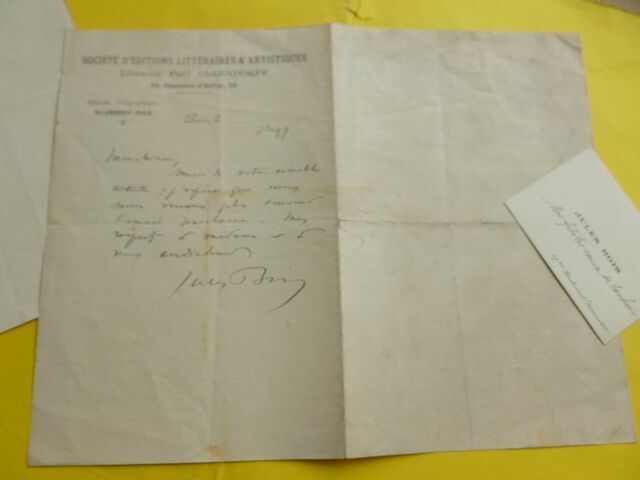 SOCIÉTÉ D'ÉDITIONS LITTÉRAIRES & ARTISTIQUES
Librairie Paul OLLENDORFF
50, Chaussée-d'Antin, 50
Adresse Télégraphique
OLLENDORFF-PARIS
Paris le
Merci de votre aimable
article, j'espère que nous
nous verrons plus souvent
l'année prochaine. Mes
respects à madame et à
vous cordialement
Jules Bois
JULES BOIS